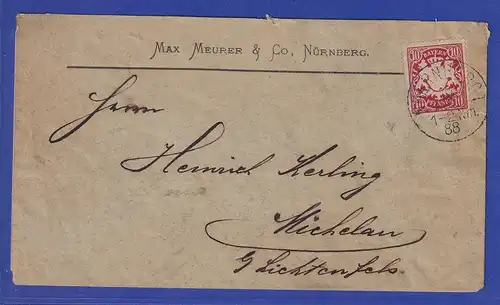 Max Meurer & Co, Nürnberg.
10 BAYERN 10
10 PFENNIG 10
1-2 Nm.
88
Herrn
Heinrich Kerling
Michelau
b/Lichtenfels